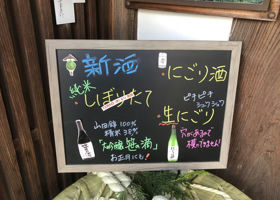 新酒
純米
しぼりたて
山田錦 100%
精米 38%
大吟醸 笹の滴
お正月にも!
にごり酒
ピチピチ
シュワシュワ
生にごり
穴があるので
横にできません!